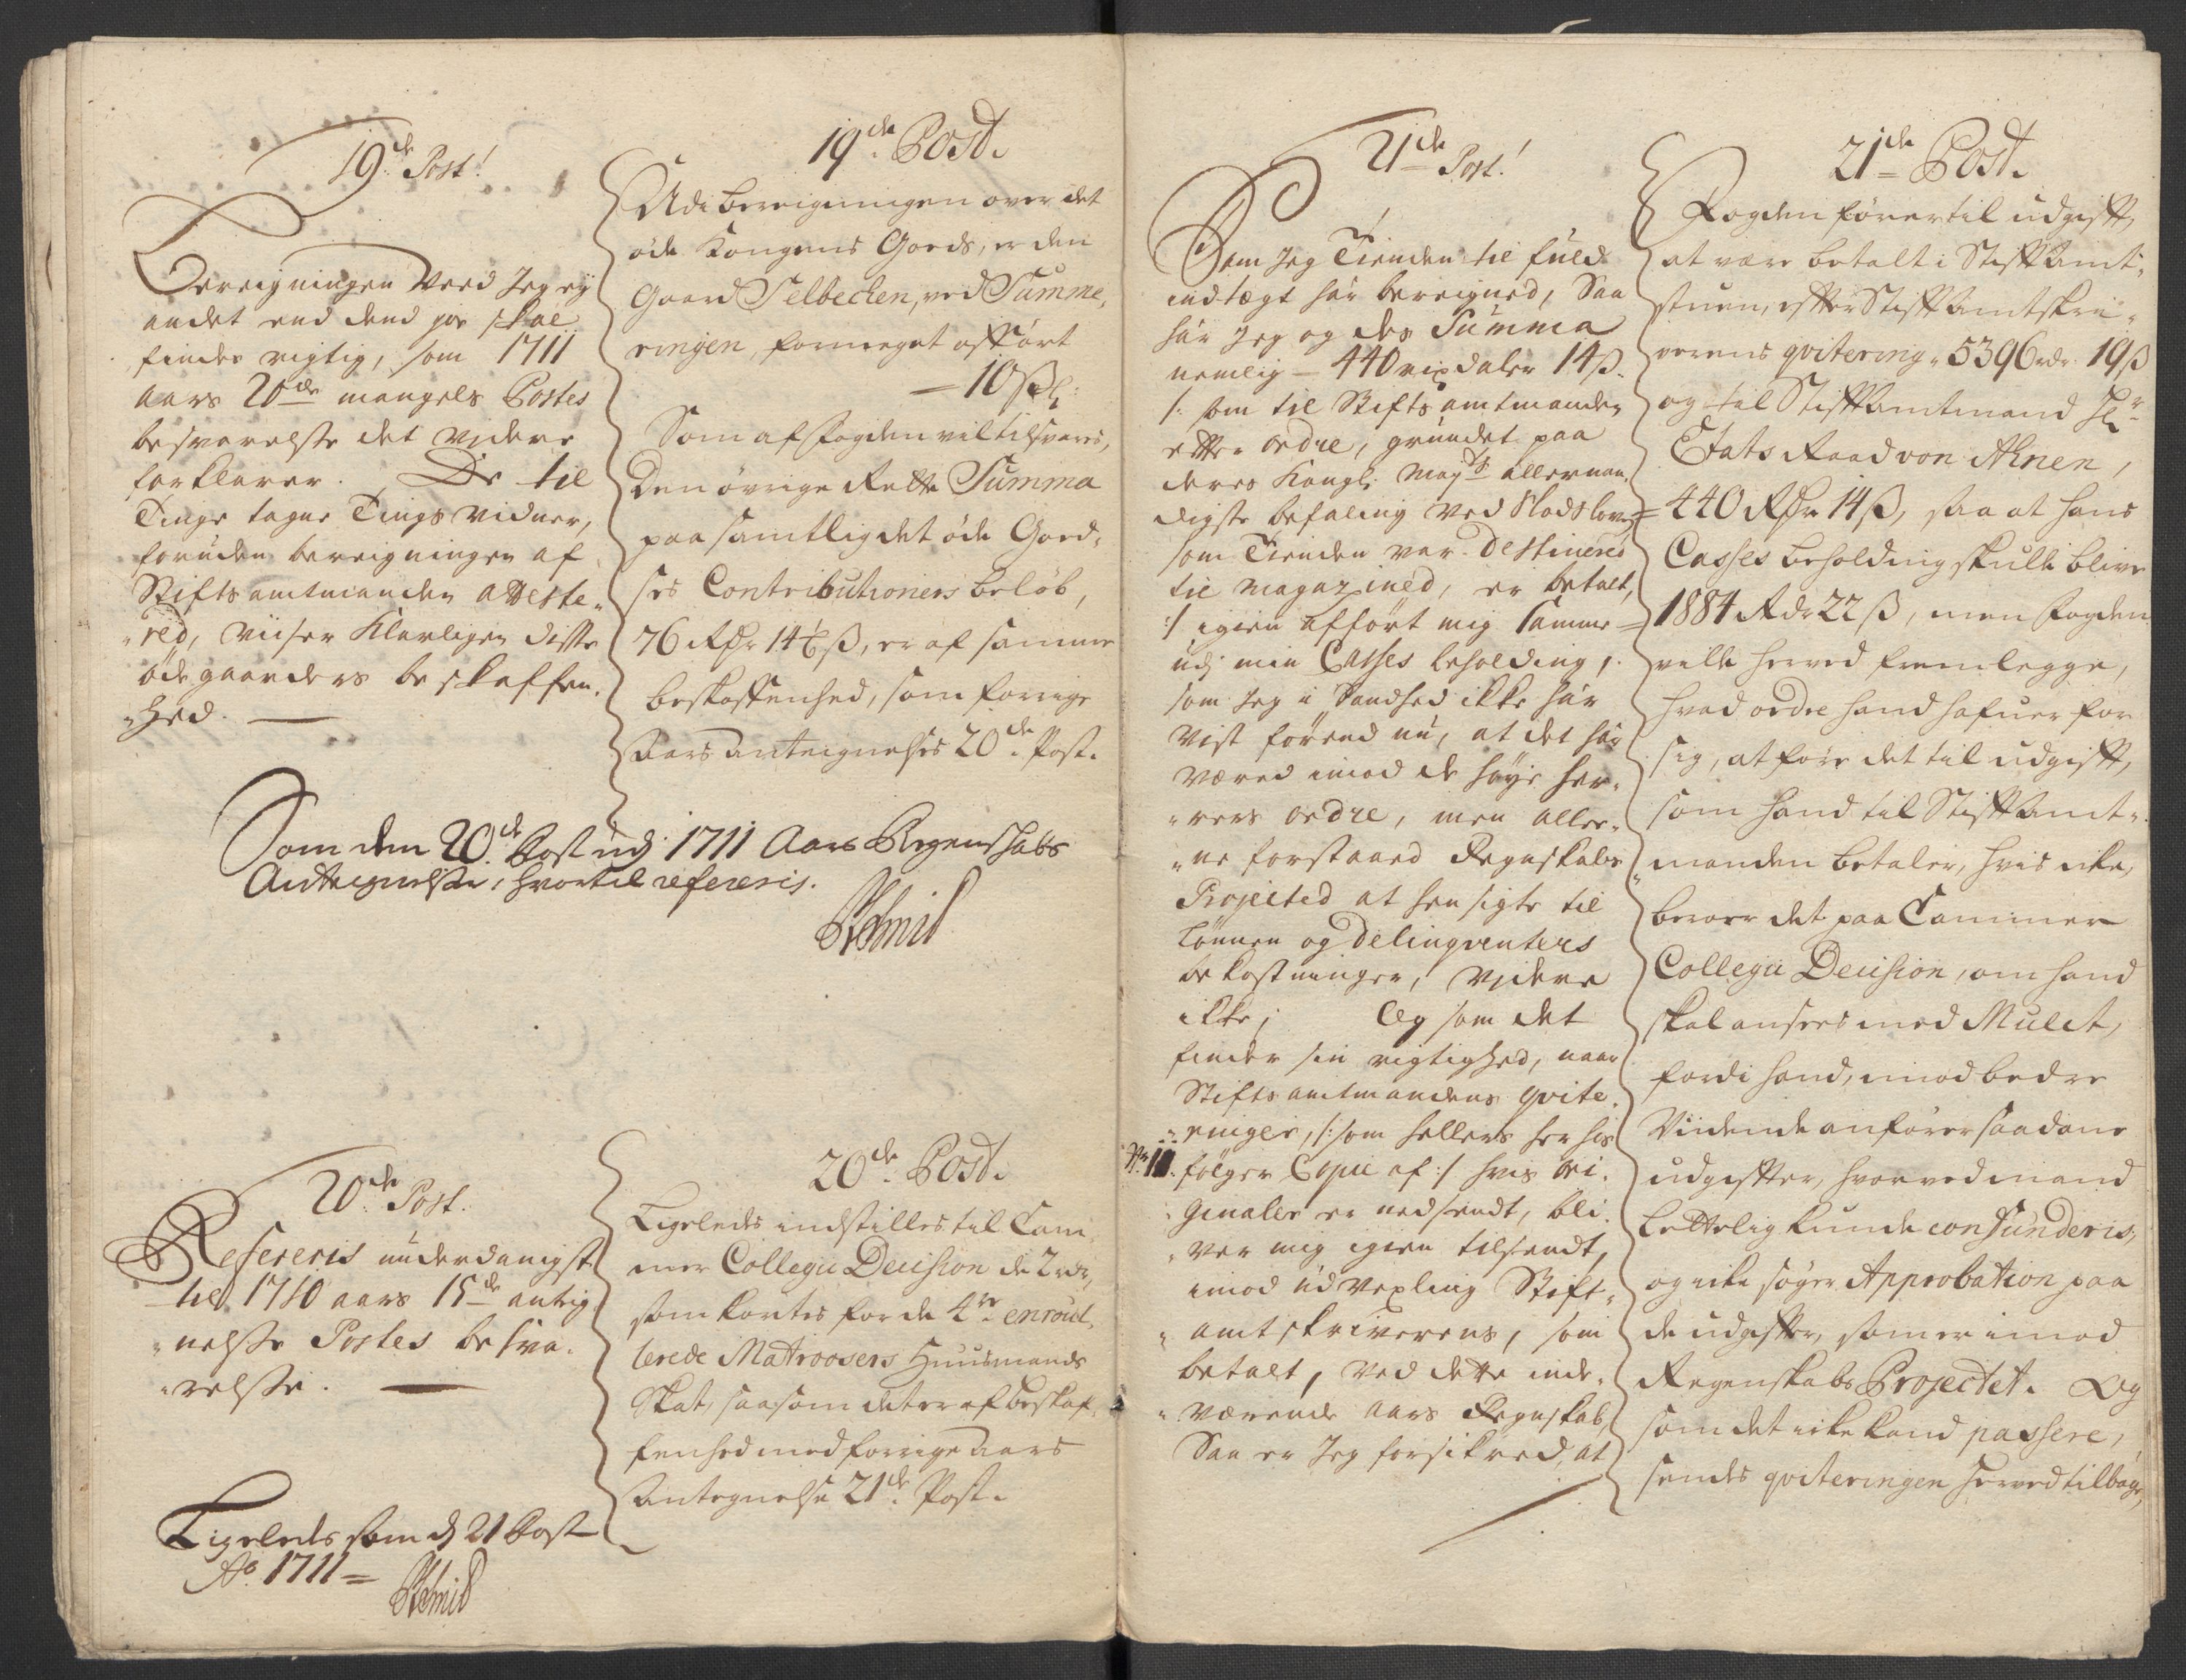 19de Post!
Bereigningen Veed Jeg ey
andet end dend jo skal
findes rigtig, som 1711
aars 20de mangels Postes
besvarelsse det vjdere
forklarer. De til
Tinge tagne Tings vidner,
foruden bereigningen af
Stiftsamtmanden atteste„
„red, viiser Klarligen disse
öde gaarders beskaffen„
„hed.
19de Post.
Udi bereigningen over det
øde Kongens Goeds, er den
Gaard Selbechen, ved Summe„
ringen, formeget afført
— 10 ß
Som af fogden vil tilsvares,
Den övrige Rette Summa
paa samtlig det öde Goed„
ses Contributioners beløb,
76 Rdr 14½ ß, er af samme
beskaffenhed, som forrige
Aars antegnelses 20de Post.
Som dem 20de Post udj 1711 Aars Regenskabs
Antegnelsse, hvortil refereris.
20de Post.
Refereris underdanigst
til 1710 aars 15de anteg„
„nelsse Postes besva„
„relsse.
20de Post.
Ligeledes indstilles til Cam„
mer Collegii Decission de 2 rdr,
som kortes for de 4re enroul„
lerede Matroosers Huusmands
Skat, saasom det er af beskaf„
fenhed med forrige aars
Antegnelse 21de Post.
Ligeledes som d 21 Post
Ao 1711 =
21de Post!
Som Jeg Tienden til fuld
indtægt har bereigned, Saa
har Jeg og des Summa
nemlig — 440 rixdaler 14 ß.
/: som til Stiftsamtmanden
efter ordre, grundet paa
deres Kongl: Mayts allernaa„
digste befaling ved Slodsloven
som Tienden var destinered
til magazined, er betalt,
:/ igien afført mig samme =
udj min Casses beholding,
som Jeg i Sandhed ikke har
vist førend nu, at det har
væred imod de høye her„
„rers ordre, men aller„
„ne forstaaed Regnskabs
Projected at hensigte til
Lønnen og delinqventers
bekostninger, vjdere
ikke; Og som det
finder sin rigtighed, naar
Stiftsamtmandens qvite„
„ringer, /: som hellers her hos
No 10. følger Copie af :/ hvis ori„
„ginaler er nedsendt, bli„
„ver mig igien tilsendt,
imod udvexling Stift„
„amtskriverens, som
betalt, ved dette inde„
„værende aars Regnskab,
Saa er Jeg forsikred, at
21de Post.
Fogden fører til udgifft,
at være betalt i StifftAmt„
stuen, effter StifftAmtskri„
verens qvitering, 5396 rdr 19 ß
og til StifftAmtmand Hr
Etats Raad von Ahnen,
= 440 Rdr 14 ß, saa at hans
Casses beholding skulle blive
1884 Rdr 22 ß, men fogden
ville herved fremlegge,
hvad ordre hand hafuer for
sig, at føre det til udgifft,
som hand til StifftAmt„
„manden betaler, hvis icke,
beroer det paa Cammer
Collegii Decission, om hand
skal ansees med Mulct,
fordi hand, imod bedre
Vidende anfører saadane
udgiffter, hvorved mand
lettelig kunde confunderis,
og icke søger Approbation paa
de udgiffter, som er imod
Regenskabs Projectet. Og
som det icke kand passere,
sendes qviteringen herved tilbage,